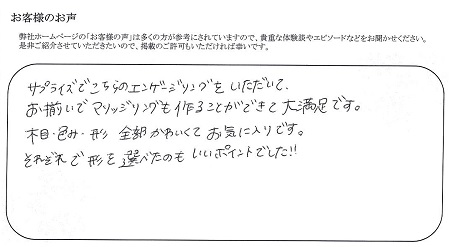 お客様のお声
弊社ホームページの「お客様の声」は多くの方が参考にされていますので、貴重な体験談やエピソードなどをお聞かせください。
是非ご紹介させていただきたいので、掲載のご許可もいただければ幸いです。
サプライズでこちらのエンゲージリングをいただいて、
お揃いでマリッジリングも作ることができて大満足です。
木目・色み・形 全部かわいくてお気に入りです。
それぞれで形を選べたのもいいポイントでした!!